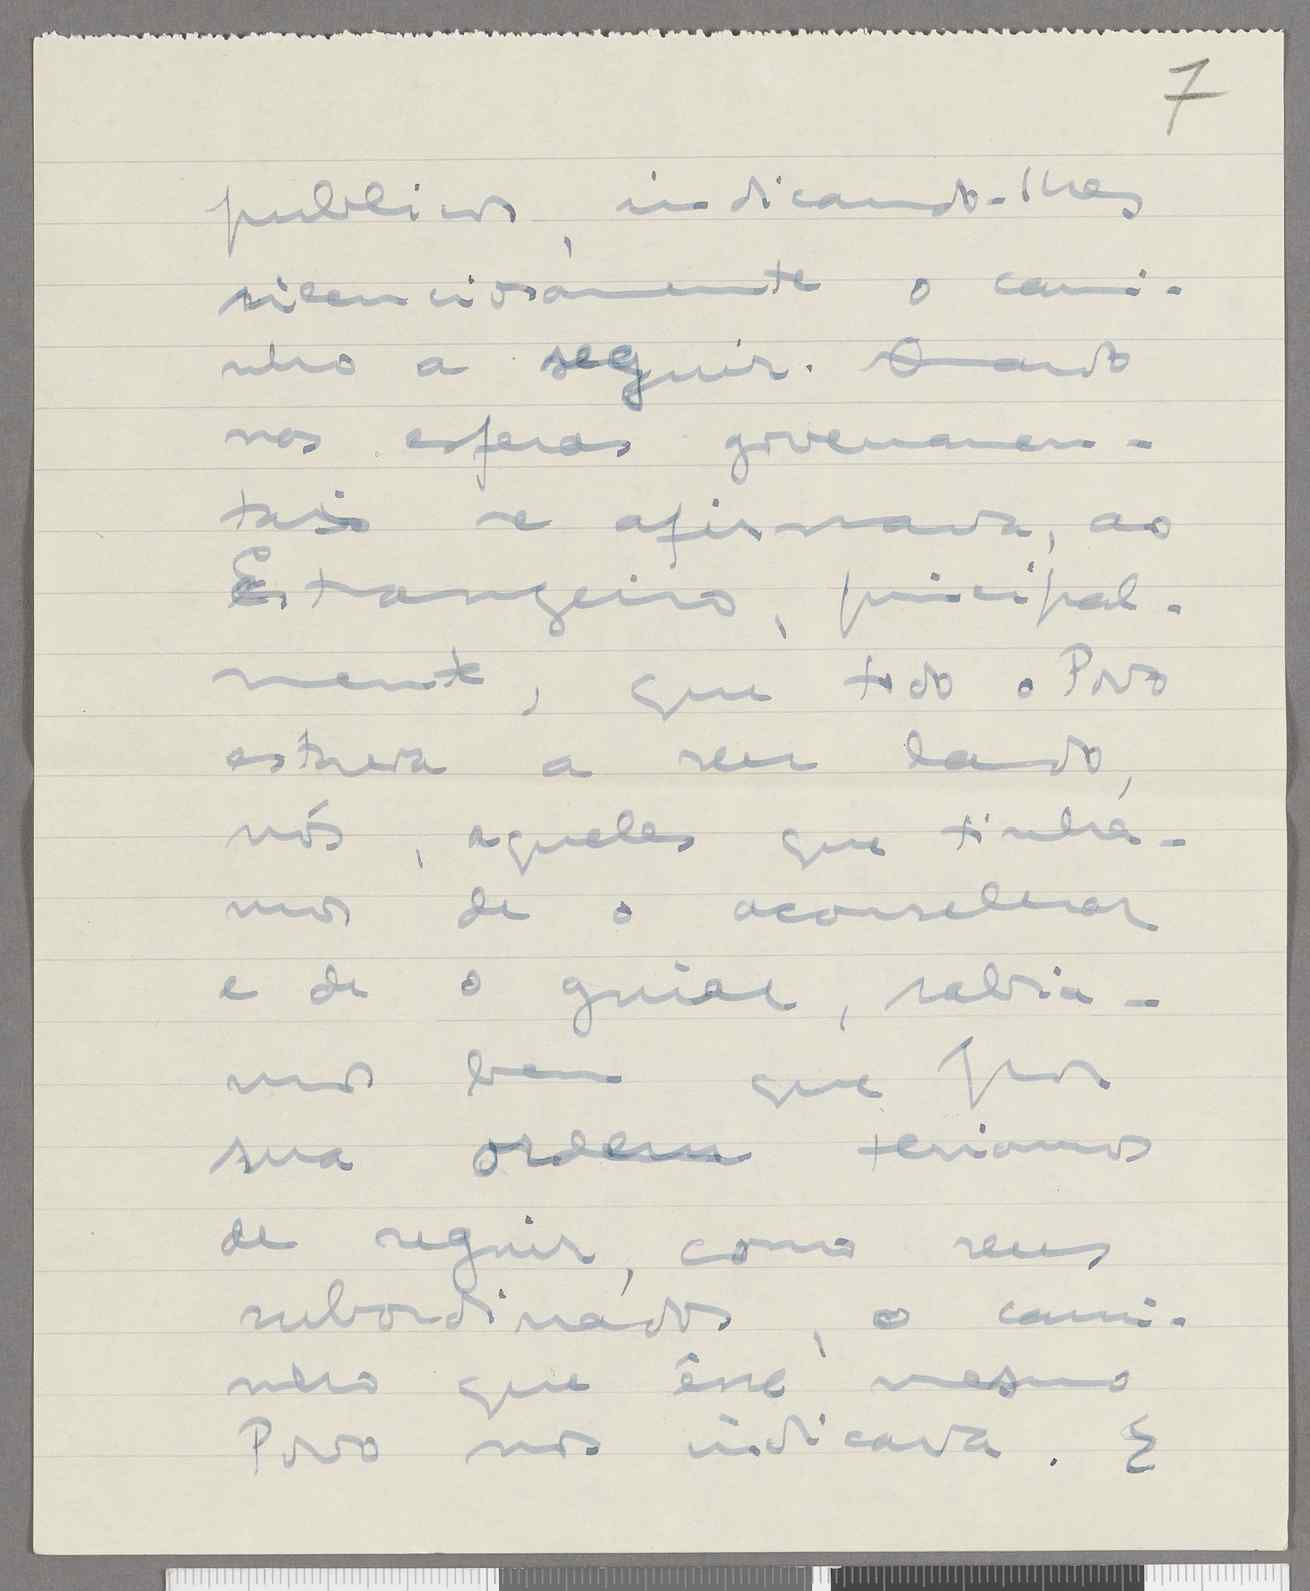 7
publicos, indicando-lhes
silenciosamente o cami-
nho a seguir. Quando
nas esferas governamen-
tais se afirmava, ao
Estrangeiro, principal-
mente, que todo o Povo
estava a seu lado,
nós, aqueles que tinhá-
mos de o aconselhar
e de o guiar, sabia-
mos bem que por
sua ordem teriamos
de seguir, como seus
subordinados, o cami-
nho que êsse mesmo
Povo nos indicava. E